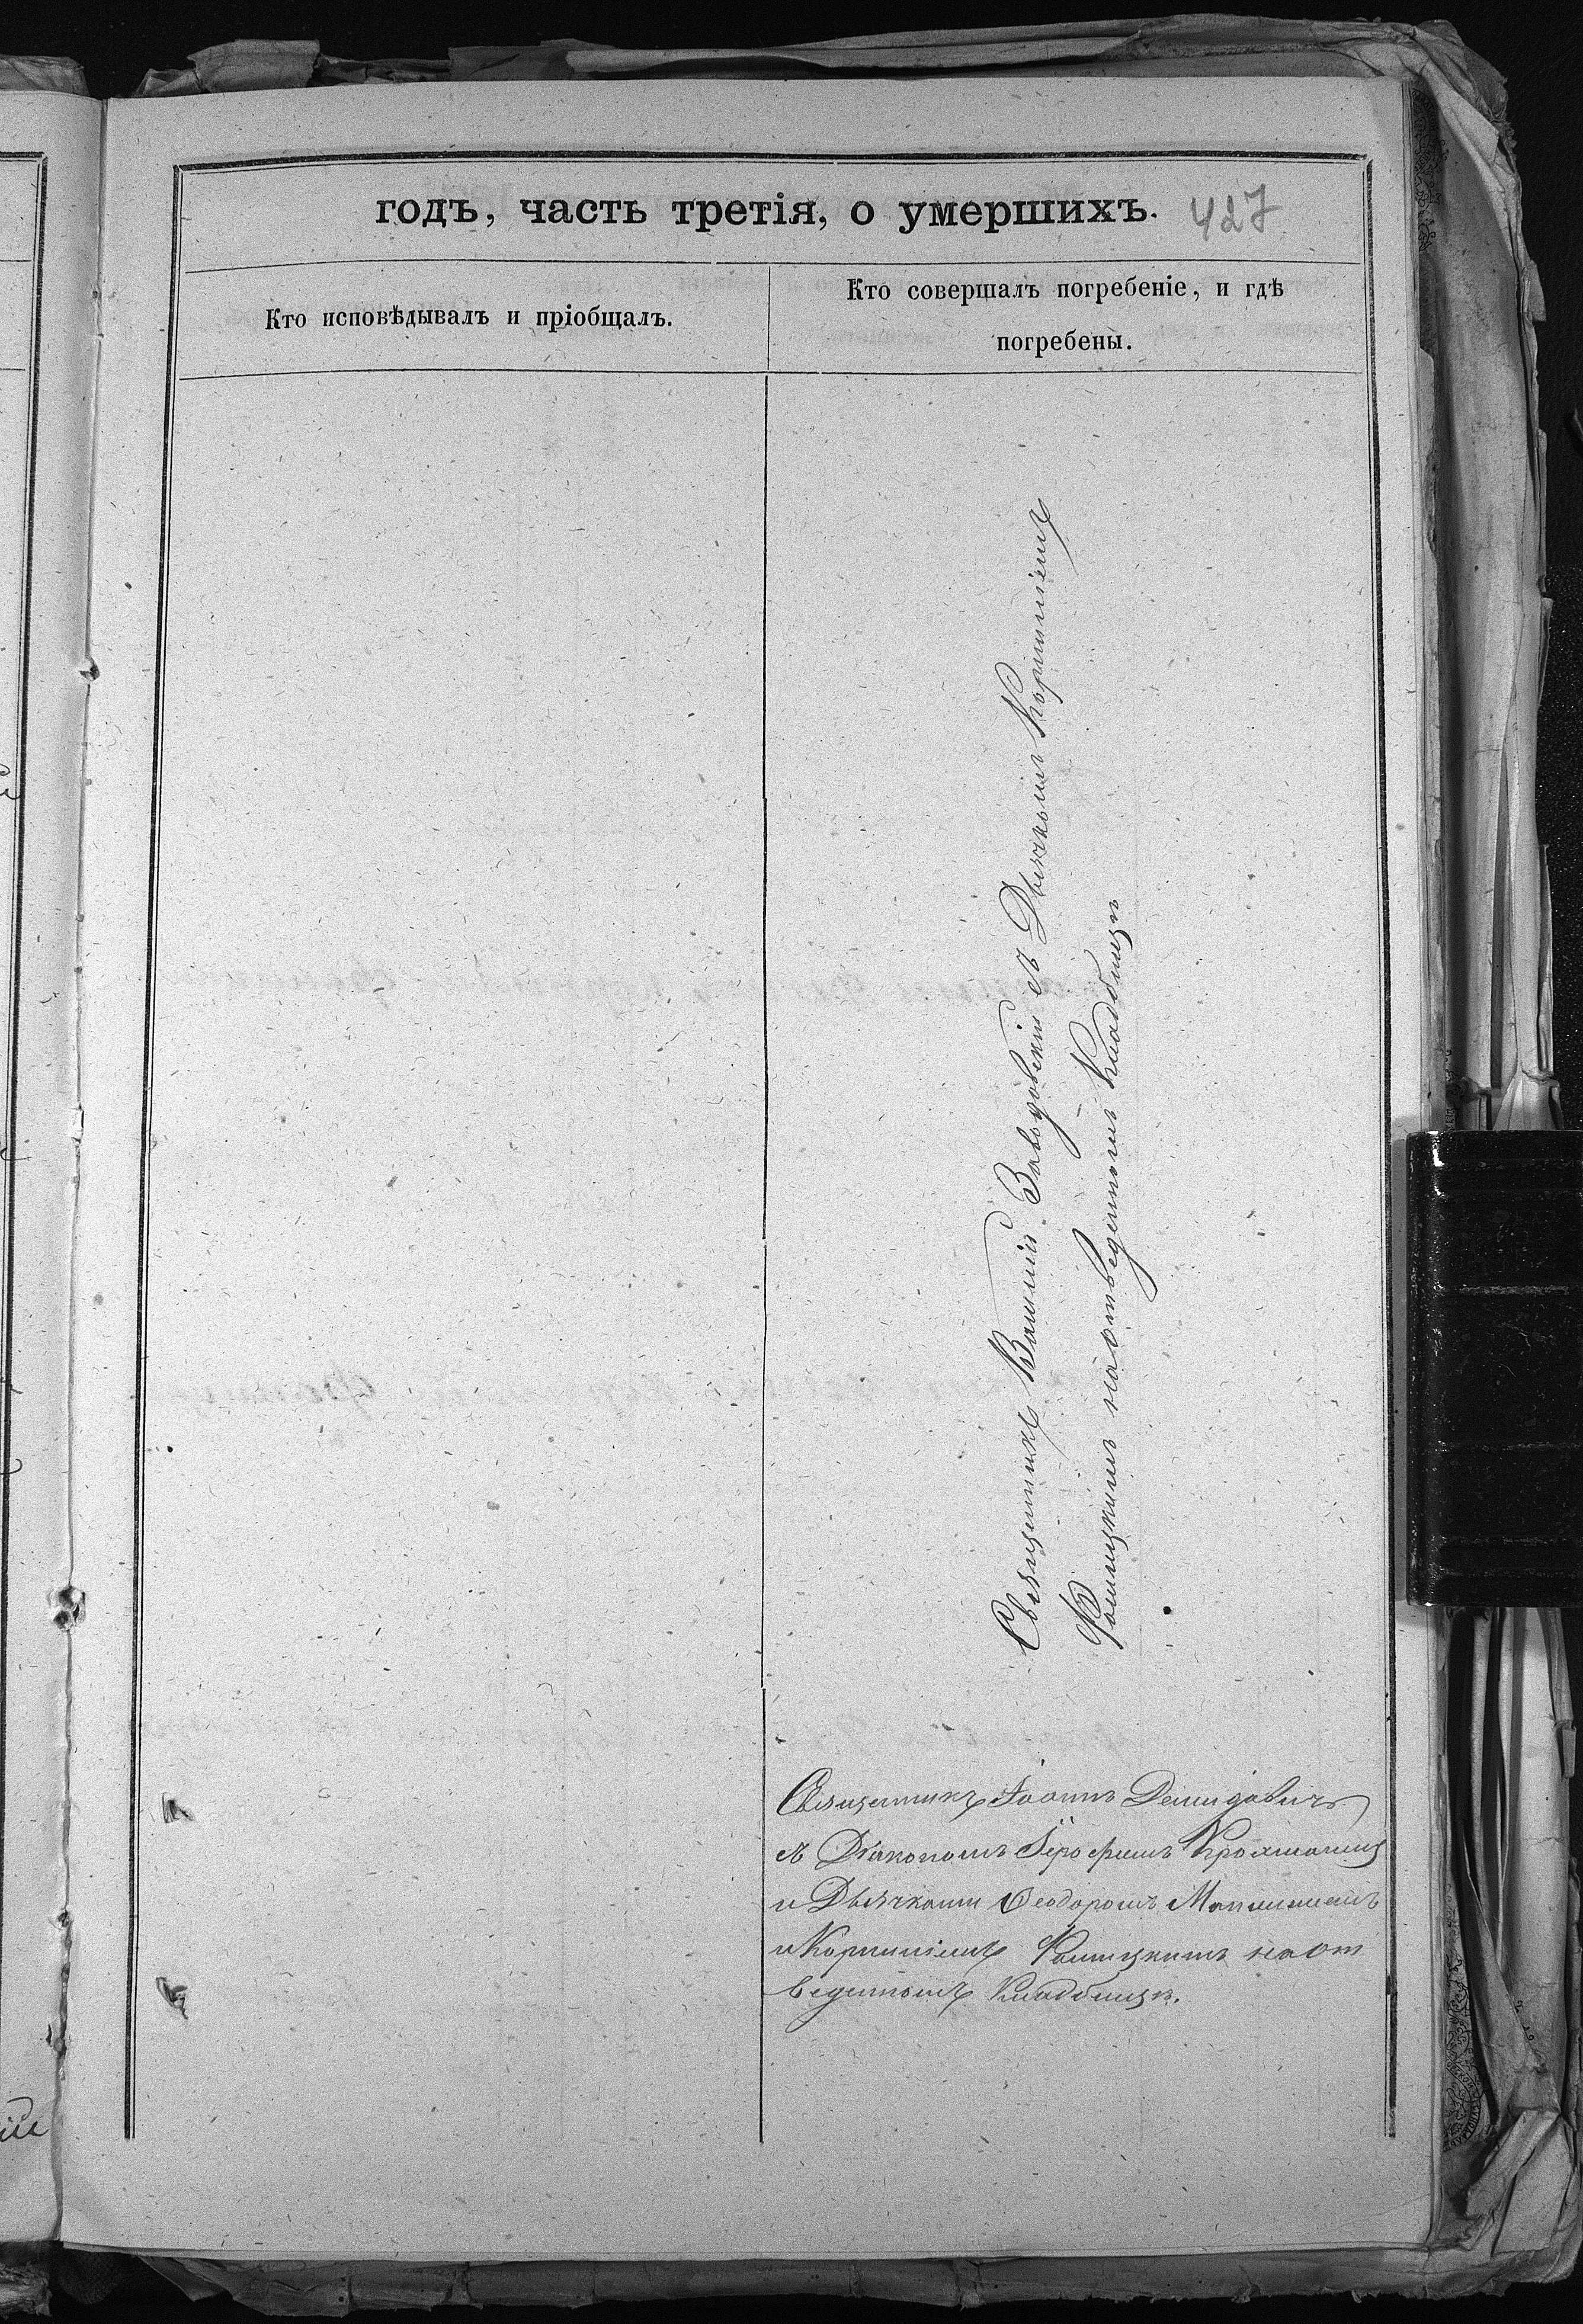 годъ, часть третія, о умершихъ.
427
Кто исповѣдывалъ и пріобщалъ.
Кто совершалъ погребеніе, и гдѣ
погребены.
Священникъ Василій Заводовскій съ Дьячкомъ Корниліемъ
Фомицкимъ на отведенномъ Кладбищѣ
Священникъ Іоаннъ Демидовичъ
съ Діакономъ Іерофимъ
и Дьячками Ѳеодоромъ
и Корниліемъ Фомицкимъ на от
веденомъ Кладбищѣ.